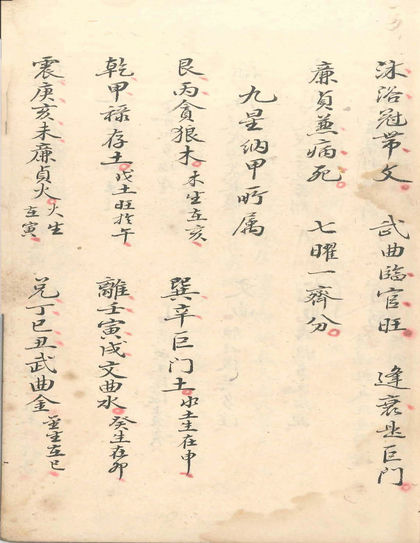 沐浴冠帶文　武曲臨官旺　逢衰是巨門
廉貞兼病死　七曜一齊分
九星納甲所属
艮丙貪狼木木生在亥　巽辛巨门土水土生在申
乾甲禄存土戊土旺於午　離壬寅戌文曲水癸生在卯
震庚亥未廉貞火火生在寅　兑丁巳丑武曲金金生在巳